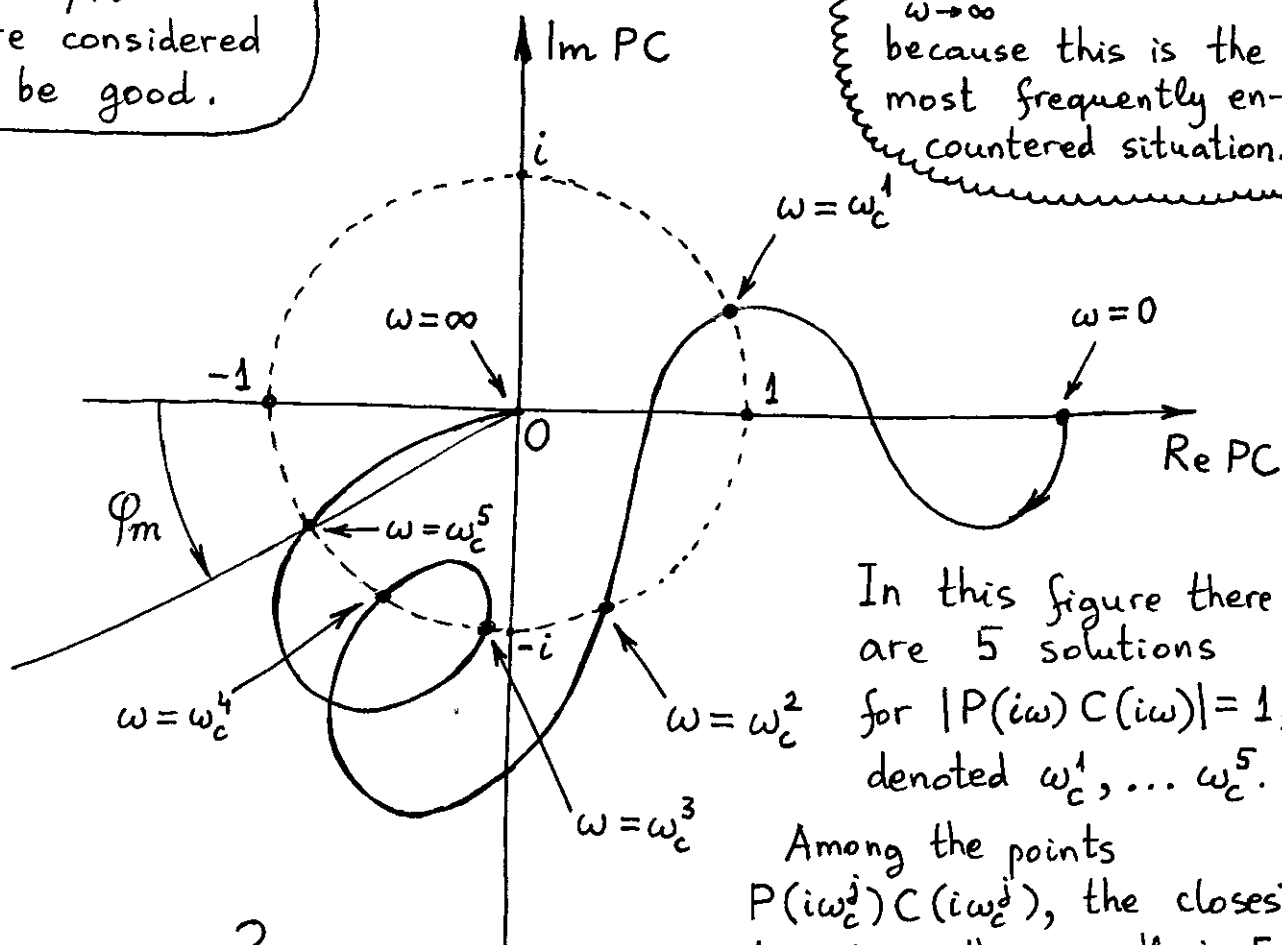 e considered
be good.
Im PC
ω→∞
because this is the
most frequently en-
countered situation.
i
ω = ω_c^1
ω = ∞
ω = 0
-1
1
0
Re PC
φ_m
ω = ω_c^5
-i
ω = ω_c^4
ω = ω_c^2
ω = ω_c^3
In this figure there
are 5 solutions
for |P(iω) C(iω)| = 1,
denoted ω_c^1, ... ω_c^5.
Among the points
P(iω_c^j) C(iω_c^j), the closes